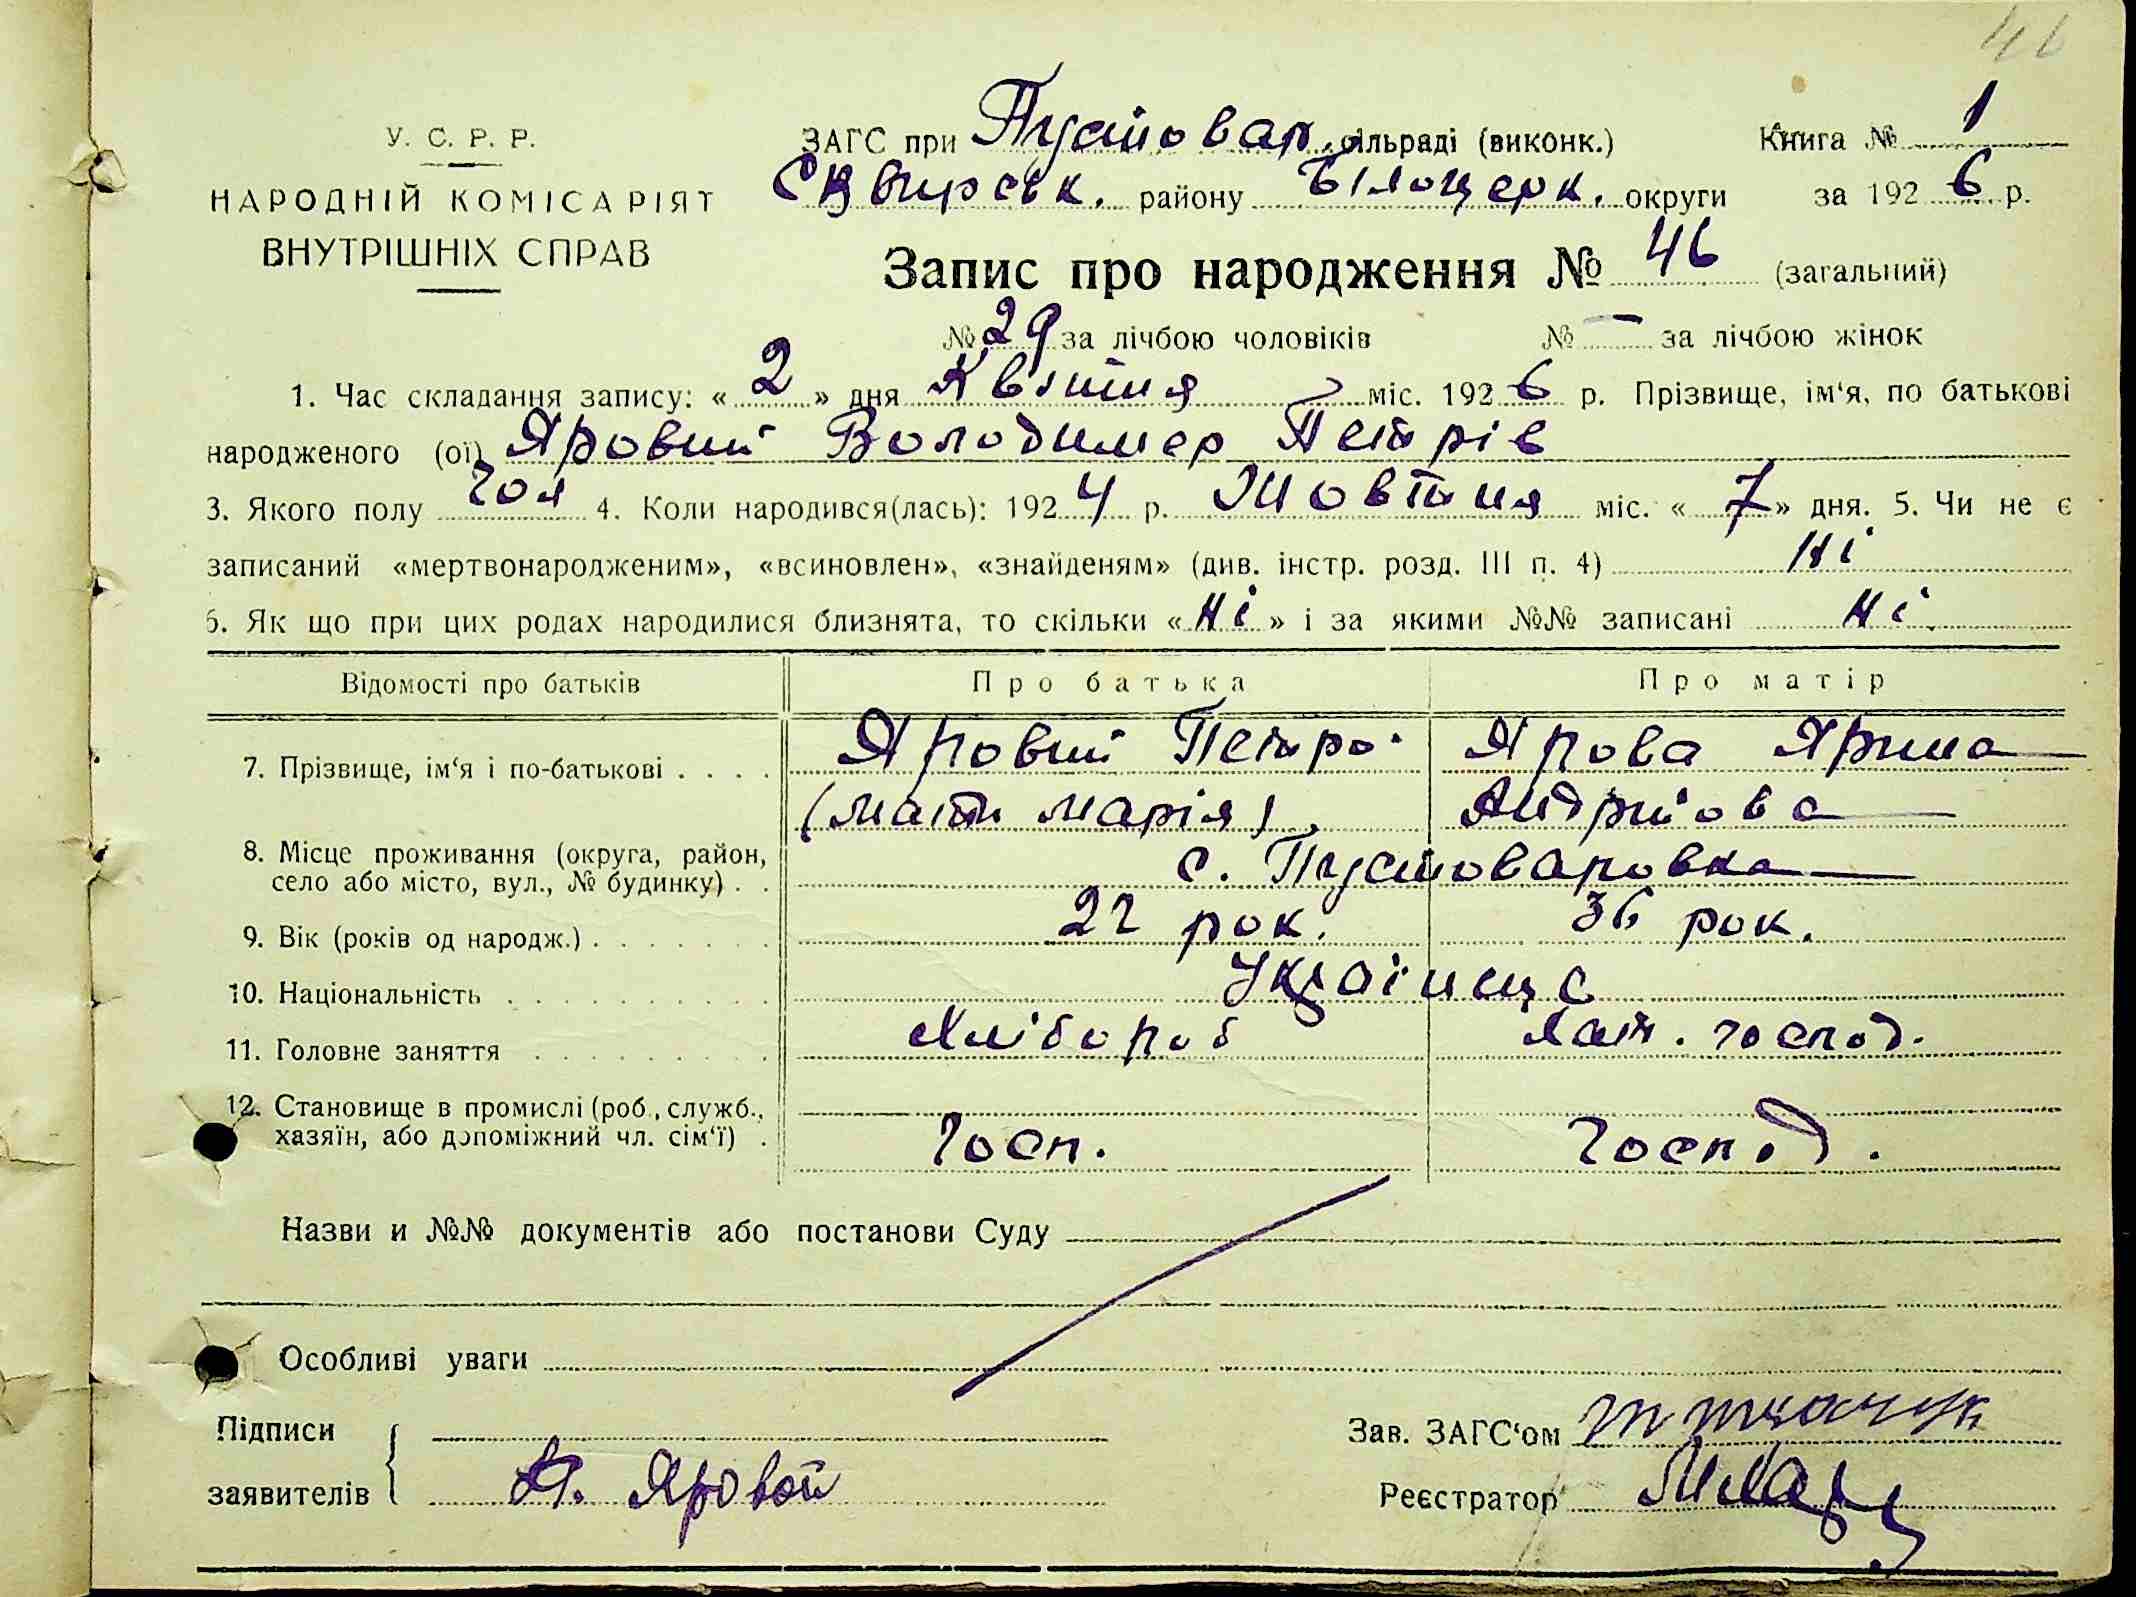 46
У. С. Р. Р.
НАРОДНІЙ КОМІСАРІЯТ
ВНУТРІШНІХ СПРАВ
ЗАГС при Пустовар. сільраді (виконк.)
Книга № 1
Сквирськ. району Білоцерк. округи
за 1926 р.
Запис про народження № 46 (загальний)
№ 29 за лічбою чоловіків № — за лічбою жінок
1. Час складання запису: «2» дня Квітня міс. 1926 р. Прізвище, ім‘я, по батькові
народженого (ої) Яровий Володимер Петрів
3. Якого полу чол 4. Коли народився(лась): 1924 р. Жовтня міс. «7» дня. 5. Чи не є
записаний «мертвонародженим», «всиновлен», «знайденям» (див. інстр. розд. III п. 4) Ні
6. Як що при цих родах народилися близнята, то скільки «Ні» і за якими №№ записані Ні.
Відомості про батьків Про батька Про матір
7. Прізвище, ім‘я і по-батькові . . . . Яровий Петро Ярова Ярина
(мати Марія) Андрійова
8. Місце проживання (округа, район,
село або місто, вул., № будинку) . . с. Пустоваровка
9. Вік (років од народж.) . . . . . . . 22 рок. 36 рок.
10. Національність . . . . . . . . . . Українці
11. Головне заняття . . . . . . . . . Хлібороб хат. господ.
12. Становище в промислі (роб., служб.,
хазяїн, або допоміжний чл. сім‘ї) . Госп. Господ.
Назви и №№ документів або постанови Суду
Особливі уваги
Підписи
заявителів П. Яровой
Зав. ЗАГС‘ом
Реєстратор